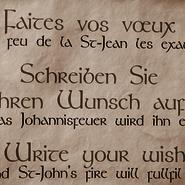 Faites vos vœux
feu de la St-Jean les
Schreiben Sie
Wunsch auf
Johannisfeuer wird ihn
Write your wish
St-John's fire will fulfil